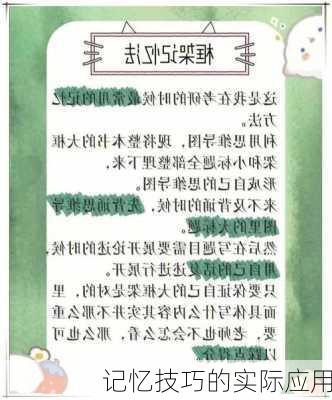 框架记忆法
这是我在考研的时候最常用的记忆
方法。
利用思维导图，现将整本书的大框
架和小标题全部整理下来，
形成自己的思维导图。
来不及背诵的时候，先背诵思维导
图里的大标题。
然后在写题目需要展开论述的时候，
用自己的话复述进行展开。
只要保证自己的大框架是对的，里
面具体写什么内容其实并不那么重
要，老师也不会怎么看，那么也可
以踩点得分
记忆技巧的实际应用